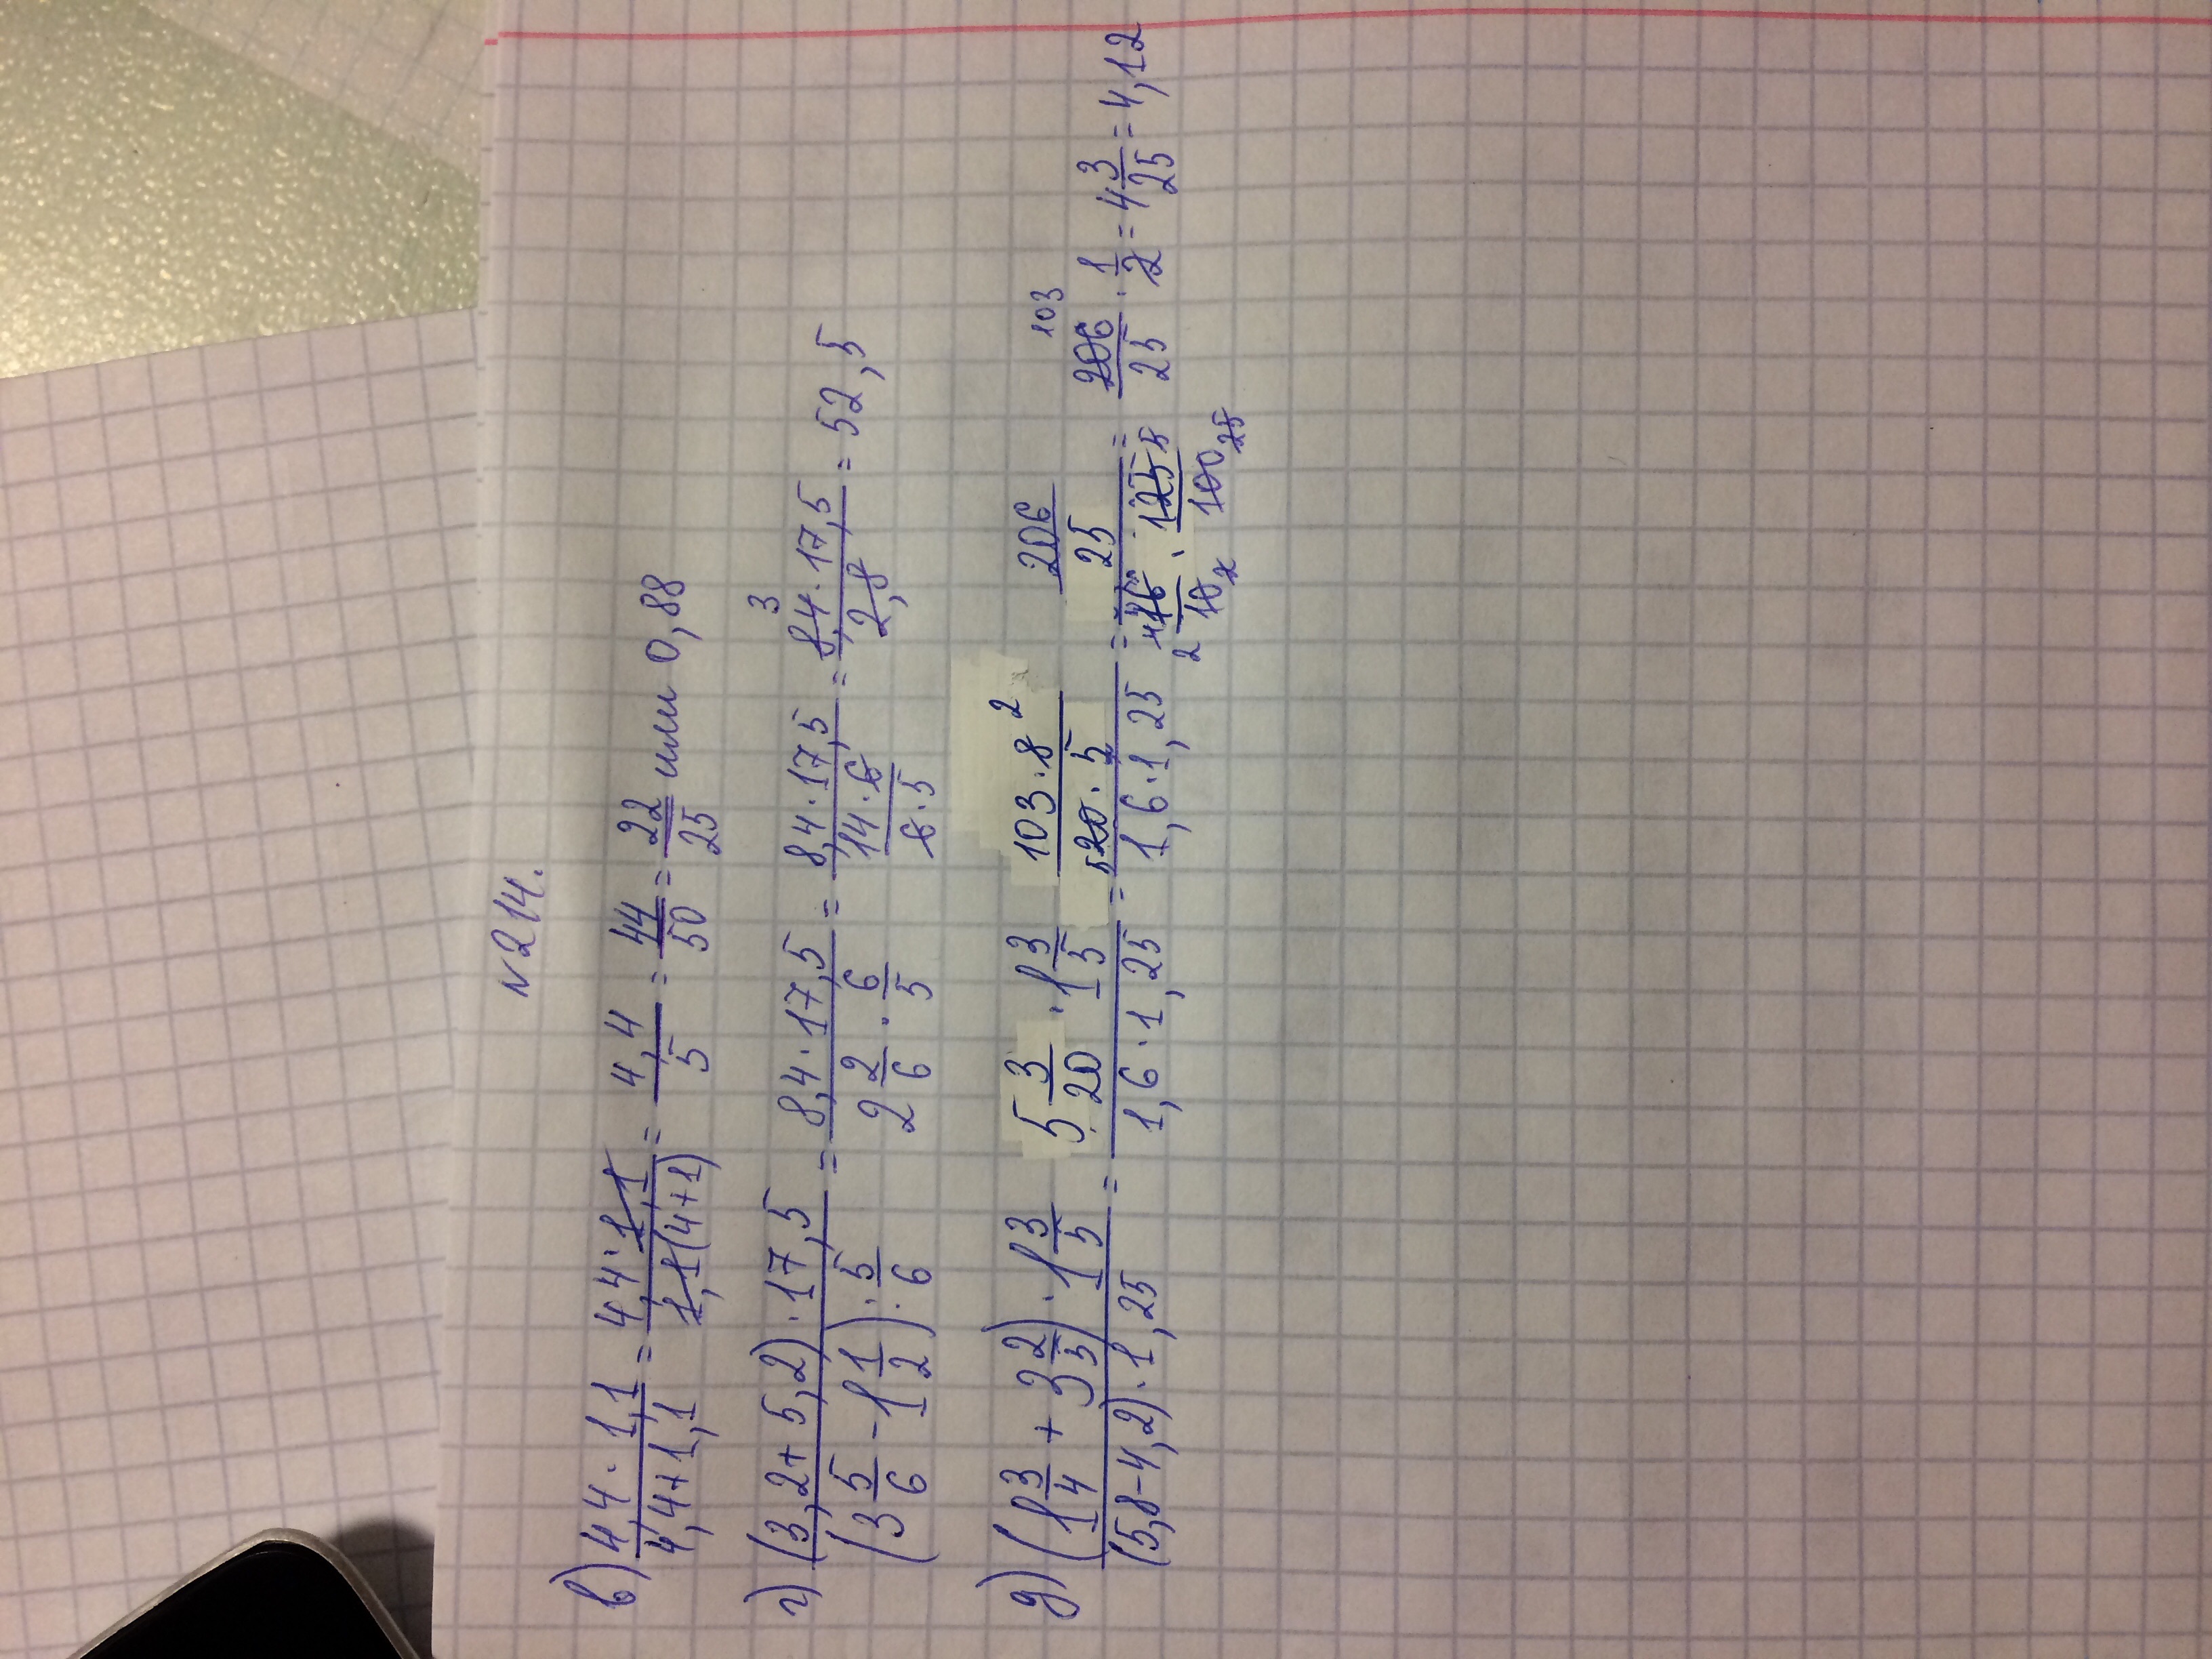 N 214.
в) 4,4 · 1,1 / 4,4+1,1 = 4,4 · 1,1 / 1,1(4+1) = 4,4 / 5 = 44/50 = 22/25 или 0,88
г) (3,2+5,2) · 17,5 / (3 5/6 - 1 1/2) · 5/6 = 8,4 · 17,5 / 2 2/6 · 6/5 = 8,4 · 17,5 / (14 · 6 / 6 · 5) = 8,4 3 · 17,5 / 2,8 = 52,5
д) (1 3/4 + 3 2/5) · 1 3/5 / (5,8-4,2) · 1,25 = 5 3/20 · 1 3/5 / 1,6 · 1,25 = (103 · 8 2 / 5 20 · 5) / 1,6 · 1,25 = (206/25) / (16/10 2 · 125 5/100 25) = 206 103/25 · 1/2 = 4 3/25 = 4,12